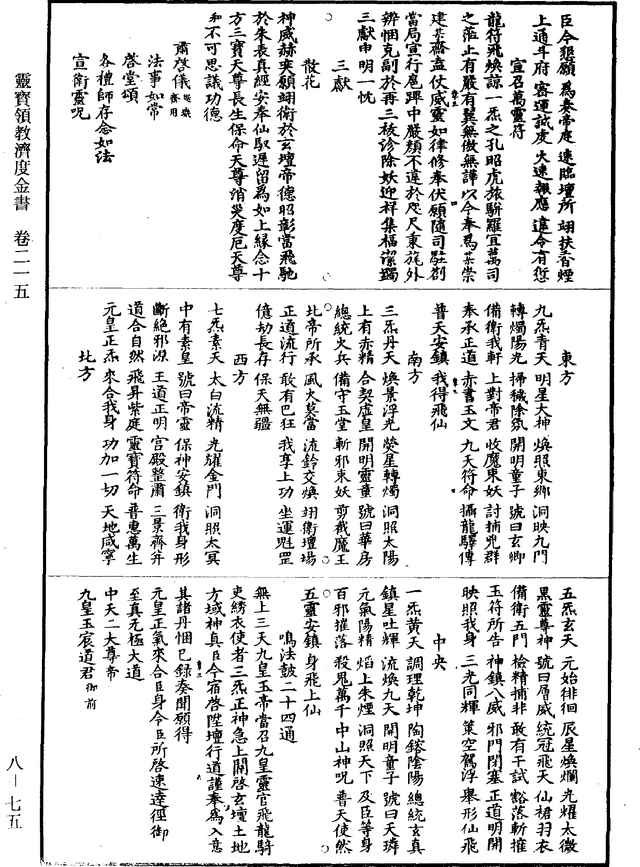 臣今懇願為奏帝庭速臨壇所翊扶香煙
上通斗府密運誠虔火速報應違令有愆
宣召萬靈符
龍符飛煥諒一炁之孔昭虎旅駢羅宜萬司
之蒞止有嚴有翼無傲無譁以今奉為某崇
建某齋盍仗威靈如律修奉伏願隨司駐劄
當局宣行扈蹕中嚴顏不違於咫尺秉旄外
辨悃克副於再三祓診除妖迎祥集福潔蠲
三獻申明一忱
三獻
散花
神威赫奕願翊衛於玄壇帝德昭彰當飛馳
於朱表真經安奉仙馭遲留為如上緣念十
方三寶天尊長生保命天尊消災度厄天尊
和不可思議功德
肅啓儀
法事如常
啓堂頌
各禮師存念如法
宣衛靈呪
東方
九炁青天 明星大神 煥照東鄉 洞映九門
轉燭陽光 掃穢除氛 開明童子 號曰玄卿
備衛我軒 上對帝君 收魔束妖 討捕兇群
奉承正道 赤書玉文 九天符命 攝龍驛傳
普天安鎮 我得飛仙
南方
三炁丹天 煥景浮光 熒星轉燭 洞照太陽
上有赤精 合契虛皇 開明靈童 號曰華房
總統火兵 備守玉堂 斬邪束妖 剪截魔王
北帝所承 風火莫當 流鈴交煥 翊衛壇場
正道流行 敢有巴狂 我享上功 坐運魁罡
億劫長存 保天無疆
西方
七炁素天 太白流精 光耀金門 洞照太冥
中有素皇 號曰帝靈 保神安鎮 衛我身形
斷絕邪源 王道正明 宮殿整肅 三景齊并
道合自然 飛昇紫庭 靈寶符命 普惠萬生
元皇正炁 來合我身 功加一切 天地咸寧
北方
五炁玄天 元始徘徊 辰星煥爛 光耀太微
黑靈尊神 號曰層威 統冠飛天 仙裙羽衣
備衛五門 檢精捕非 敢有干試 豁落斬摧
玉符所告 神鎮八威 邪門閉塞 正道明開
映照我身 三光同輝 策空駕浮 舉形仙飛
中央
一炁黃天 調理乾坤 陶鎔陰陽 總統玄真
鎮星吐輝 流煥九天 開明童子 號曰天璘
元氣陽精 焰上朱煙 洞照天下 及臣等身
百邪摧落 殺鬼萬千 中山神呪 普天使然
五靈安鎮 身飛上仙
鳴法鼓二十四通
無上三天九皇玉帝當召九皇靈官飛龍騎
吏綉衣使者三炁正神急上關啓玄壇土地
方域神真臣今宿啓陞壇行道謹奉為入意
其諸丹悃已錄奏聞願得
元皇正氣來合臣身令臣所啓速達徑御
至真无極大道
中天二大尊帝
九皇玉宸道君御前
靈寶領教濟度金書 卷二一五
八—七五